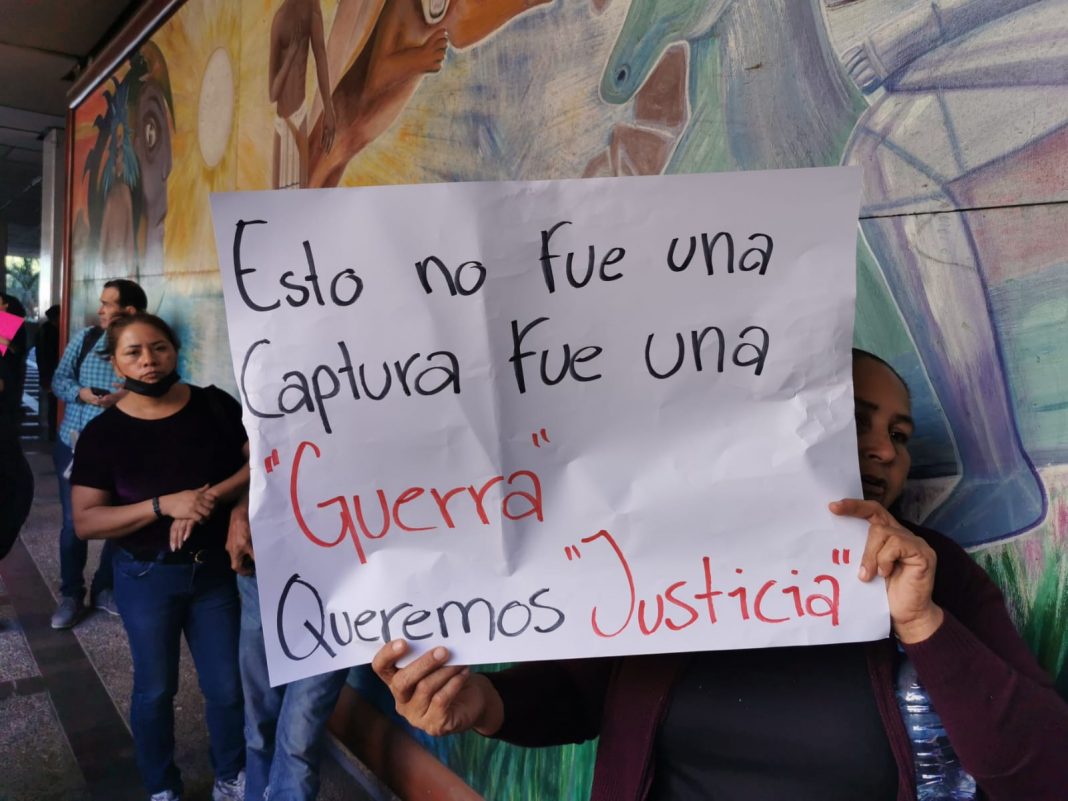 Esto no fue una
Captura fue una
"Guerra"
Queremos "Justicia"